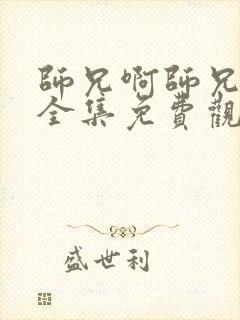 師兄啊師兄
全集免費觀
盛世利